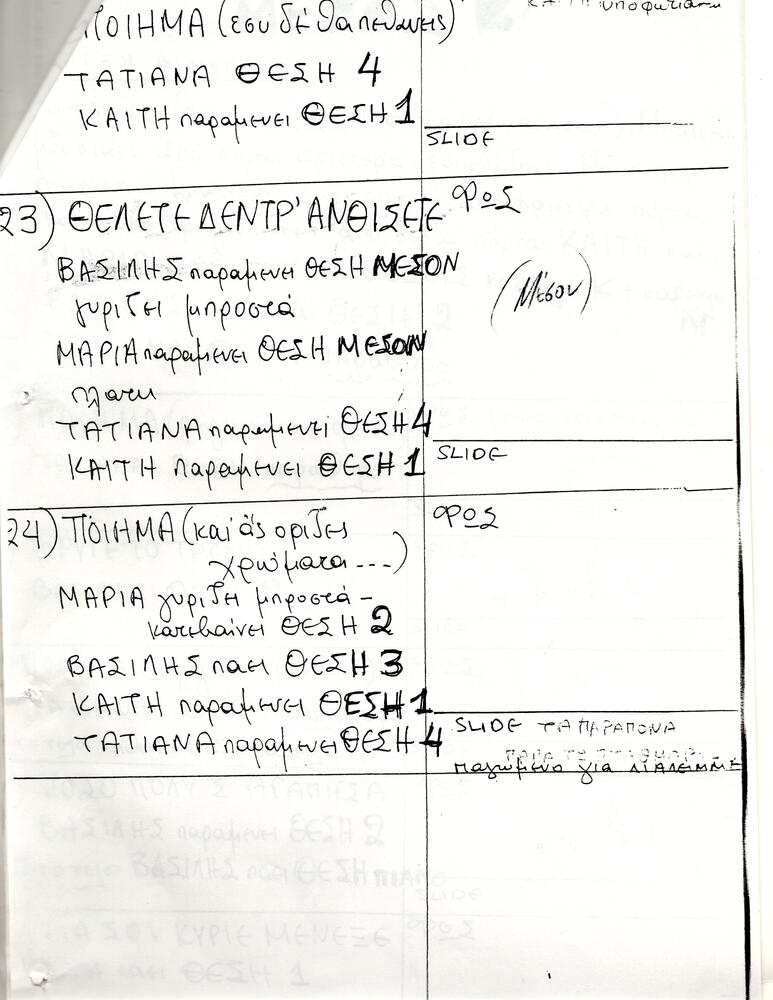 ΠΟΙΗΜΑ (εσύ δέ θα πεθάνεις)
ΤΑΤΙΑΝΑ ΘΕΣΗ 4
ΚΑΙΤΗ παραμενει ΘΕΣΗ 1
SLIDE
23) ΘΕΛΕΤΕ ΔΕΝΤΡ' ΑΝΘΙΣΕΤΕ
ΦΩΣ
ΒΑΣΙΛΗΣ παραμενει ΘΕΣΗ ΜΕΣΟΝ
γυριζει μπροστά
(Μέσον)
ΜΑΡΙΑ παραμενει ΘΕΣΗ ΜΕΣΟΝ
πλατη
ΤΑΤΙΑΝΑ παραμενει ΘΕΣΗ 4
ΚΑΙΤΗ παραμενει ΘΕΣΗ 1
SLIDE
24) ΠΟΙΗΜΑ (καί άς οριζες
χρώματα ---)
ΦΩΣ
ΜΑΡΙΑ γυριζει μπροστά -
κατεβαίνει ΘΕΣΗ 2
ΒΑΣΙΛΗΣ παει ΘΕΣΗ 3
ΚΑΙΤΗ παραμενει ΘΕΣΗ 1
ΤΑΤΙΑΝΑ παραμενει ΘΕΣΗ 4
SLIDE ΤΑ ΠΑΡΑΠΟΝΑ
παγωμένο για ΔΙΑΛΕΙΜΜΑ